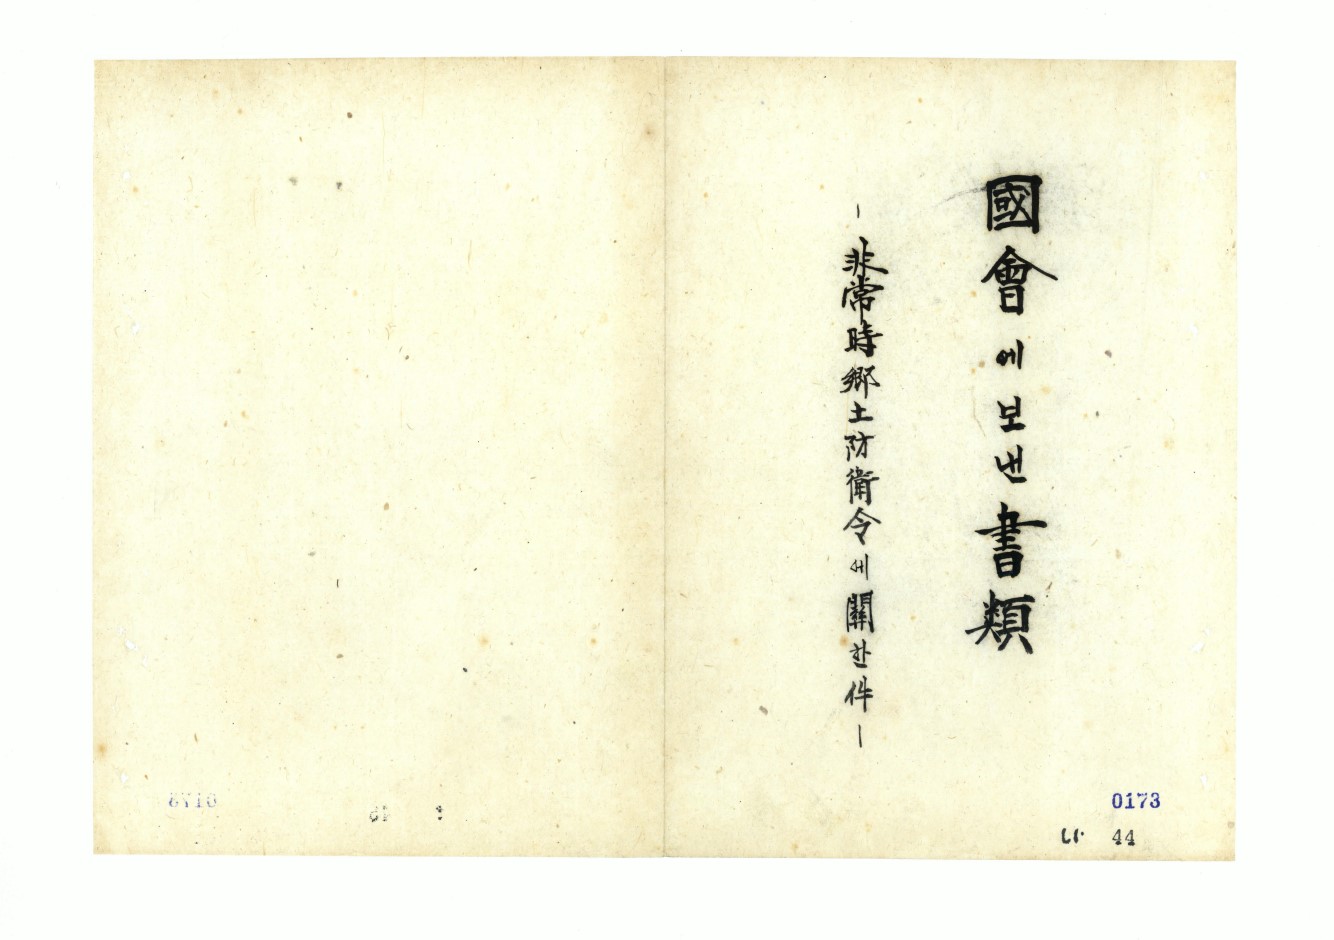 國會에보낸書類
—非常時鄕土防衛令에關한件—
0173
나 44